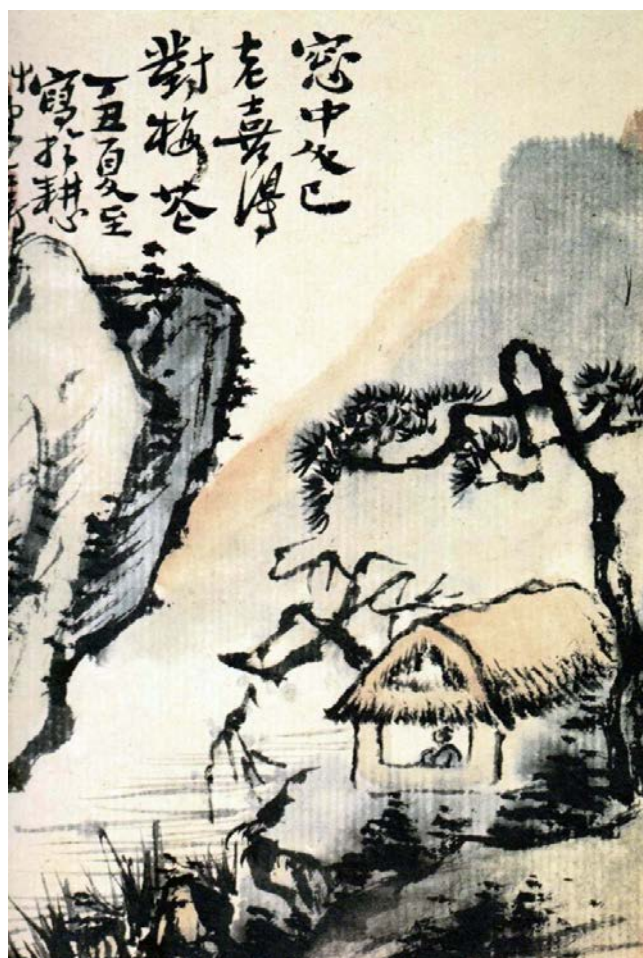 窓中人已
老喜得
對梅花
丁丑夏至
寫於耕心